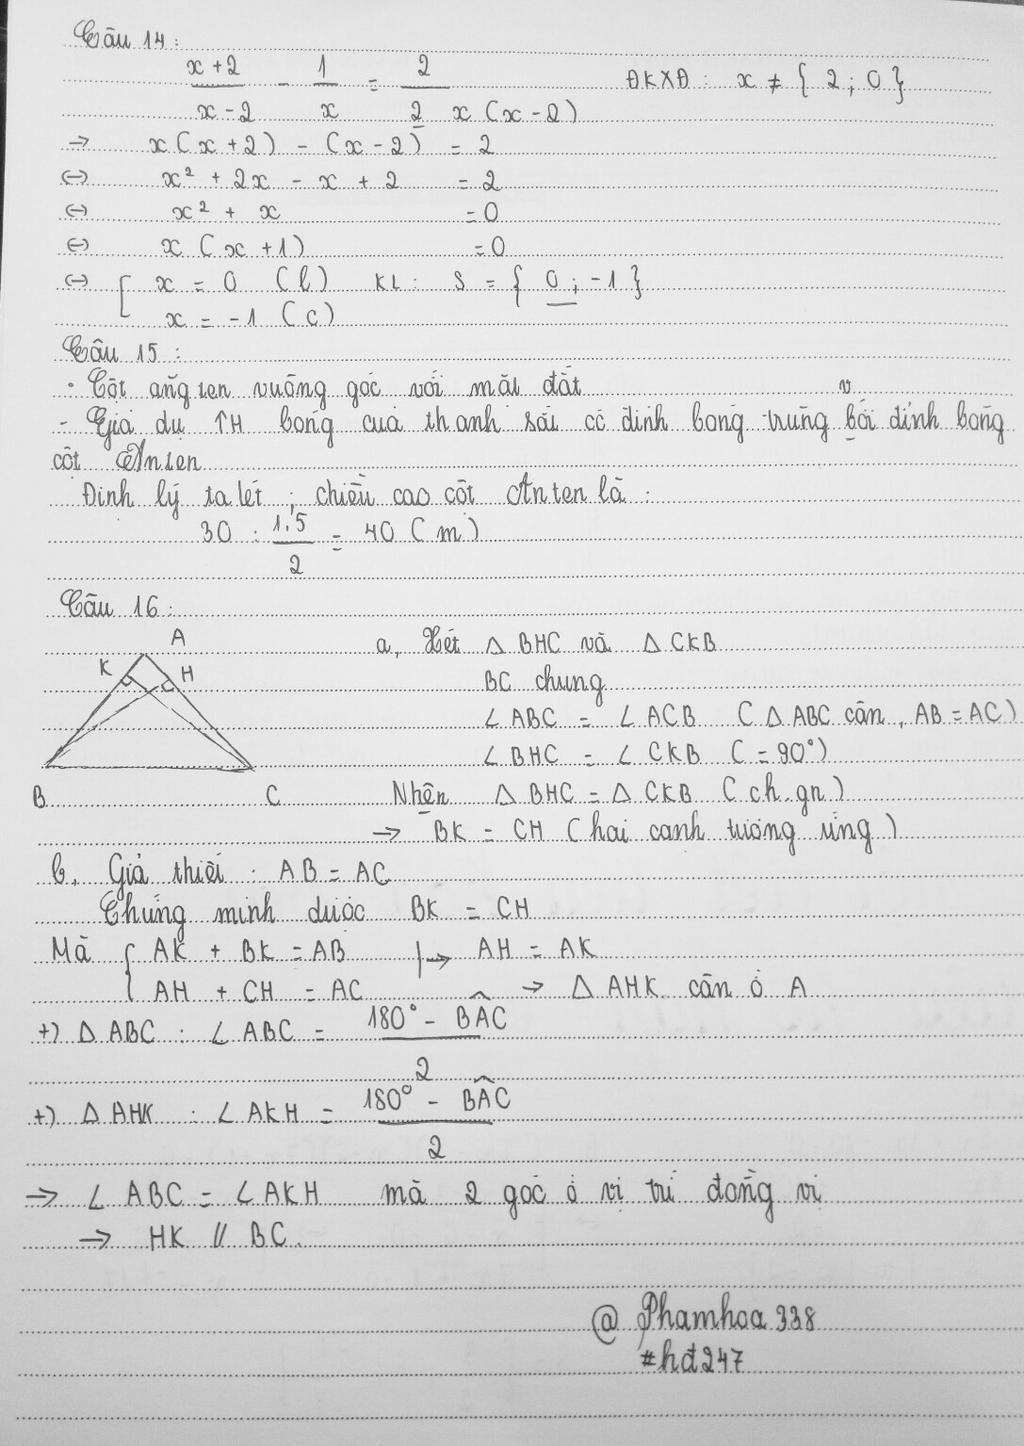 Câu 14 :
x+2 / x-2 - 1 / x = 2 / 2 x (x-2) ĐKXĐ : x ≠ { 2 ; 0 }
→ x (x+2) - (x-2) = 2
(-) x² + 2x - x + 2 = 2
(-) x² + x = 0
(-) x (x+1) = 0
(-) [ x = 0 (l) KL : S = { 0 ; -1 }
x = -1 (c)
Câu 15 :
. Cột ăng ten vuông góc với mặt đất v
- Giả dụ TH bóng của thanh sắt có đỉnh bóng trùng bới đỉnh bóng
cột Ănten
Định lý ta lét ; chiều cao cột Anten là :
30 : 1.5 / 2 = 40 (m)
Câu 16 :
A
K H
B C
a, Xét △ BHC và △ CKB
BC chung
∠ ABC = ∠ ACB ( △ ABC cân , AB = AC )
∠ BHC = ∠ CKB ( = 90° )
Nhên △ BHC = △ CKB ( ch.gn )
→ BK = CH ( hai cạnh tương ứng )
b, Giả thiết : AB = AC
Chứng minh được BK = CH
Mà { AK + BK = AB |→ AH = AK
AH + CH = AC → △ AHK cân ở A
+) △ ABC : ∠ ABC = 180° - BÂC / 2
+) △ AHK : ∠ AKH = 180° - BÂC / 2
→ ∠ ABC = ∠ AKH mà 2 góc ở vị trí đồng vị
→ HK // BC.
@ Phamhoa 338
#hđ247